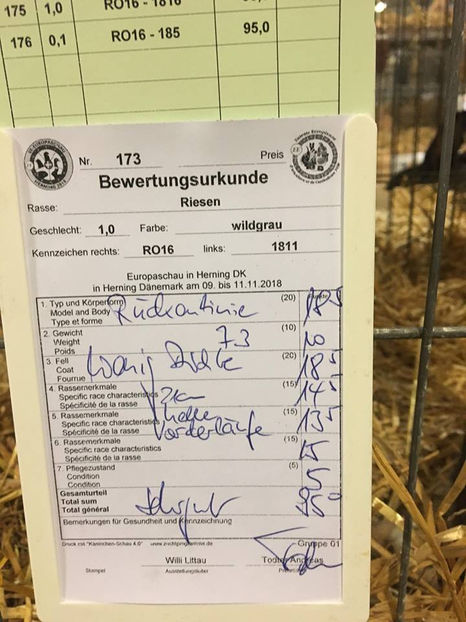 175 1,0 RO16 - 1816
176 0,1 RO16 - 185 95,0
Nr. 173 Preis
Bewertungsurkunde
Rasse: Riesen
Geschlecht: 1,0 Farbe: wildgrau
Kennzeichen rechts: RO16 links: 1811
Europaschau in Herning DK
in Herning Dänemark am 09. bis 11.11.2018
1. Typ und Körperform (20) 18,5
Model and Body Rückenlinie
Type et forme
2. Gewicht (10)
Weight 7.3 10
Poids
3. Fell (20) 18,5
Coat wenig Dichte
Fourrue
4. Rassemerkmale (15) 14,5
Specific race characteristics
Spécificité de la rasse
5. Rassemerkmale helle (15) 13,5
Specific race characteristics Vorderläufe
Spécificité de la rasse
6. Rassemerkmale (15)
Specific race characteristics 15
Spécificité de la rasse
7. Pflegezustand (5)
Condition 5
Condition
Gesamturteil
Total sum sehr gut 95,0
Total général
Bemerkungen für Gesundheit und Kennzeichnung
Druck mit "Kaninchen-Schau 4.0" Gruppe 01
Willi Littau
Stempel Ausstellungsleiter